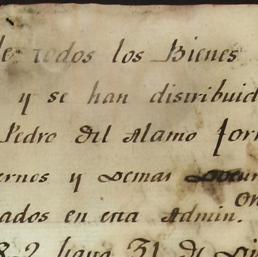 de todos los Bienes
y se han distribuid
Pedro del Alamo for
ernes y Demas
ados en esta Admin.on
82 hasta 31 de Di